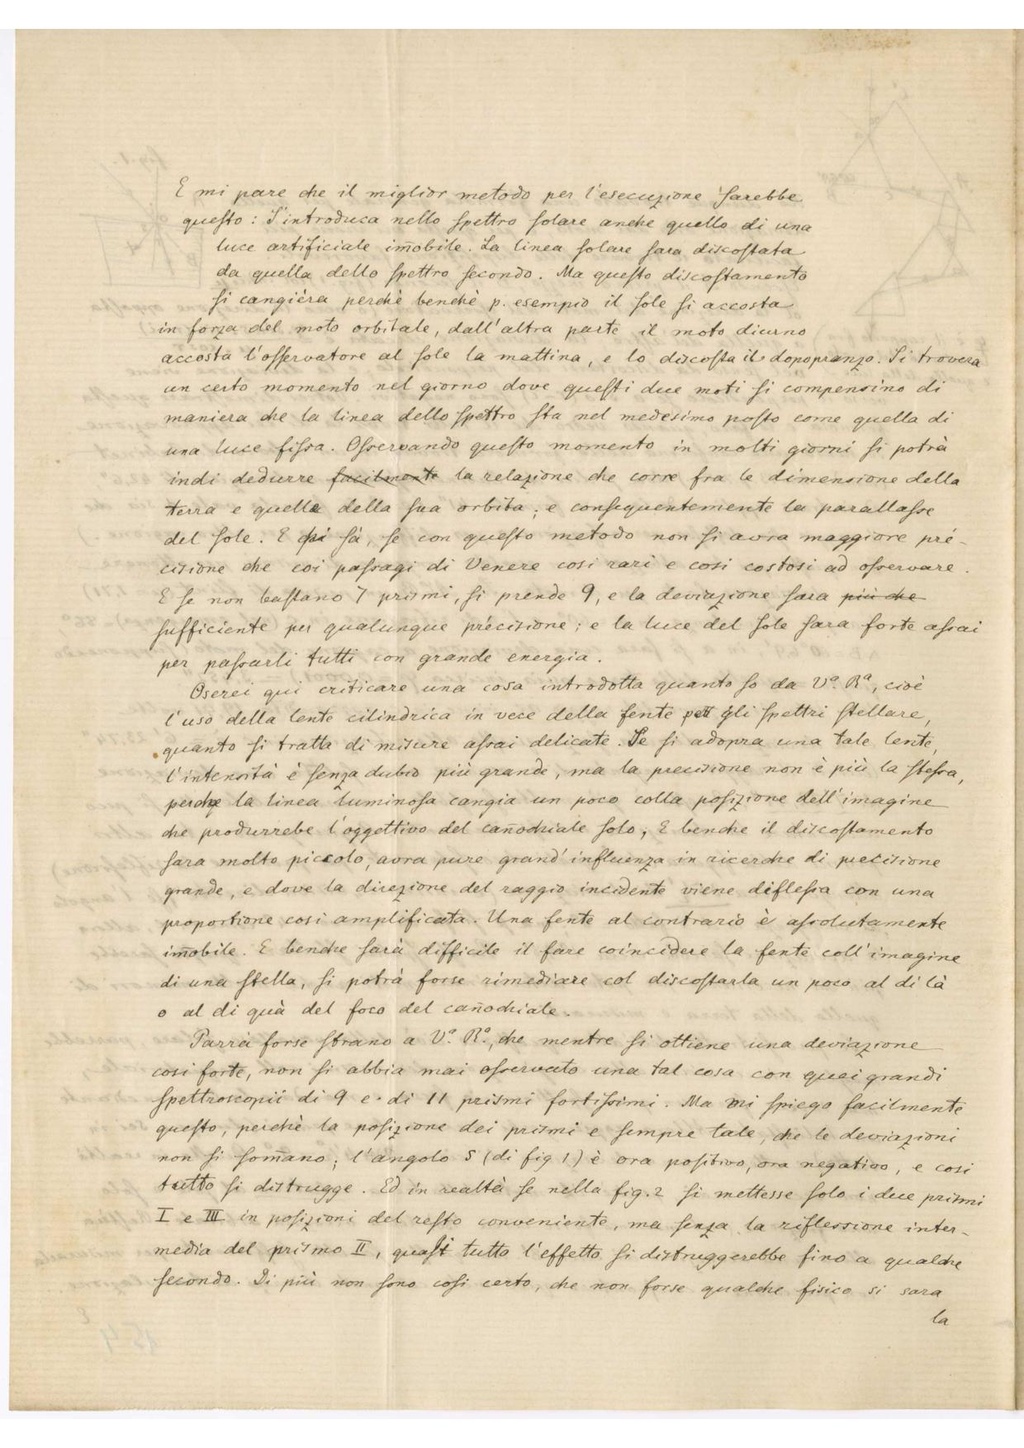 E mi pare che il miglior metodo per l'esecuzione sarebbe
questo: S'introduca nello spettro solare anche quello di una
luce artificiale im̄obile. La linea solare sara discostata
da quella dello spettro secondo. Ma questo discostamento
si cangièra perchè benchè p. esempio il sole si accosta
in forza del moto orbitale, dall'altra parte il moto diurno
accosta l'osservatore al sole la mattina, e lo discosta il dopopranzo. Si trovera
un certo momento nel giorno dove questi due moti si compensino di
maniera che la linea dello spettro sta nel medesimo posto come quella di
una luce fissa. Osservando questo momento in molti giorni si potrà
indi dedurre facilmente la relazione che corre fra le dimensione della
terra e quella della sua orbita; e consequentemente la parallasse
del sole. E chi sà, se con questo metodo non si avra maggiore pré-
cisione che coi passagi di Venere cosi rari e cosi costosi ad osservare.
E se non bastano 7 prismi, si prende 9, e la deviazione sara più che
sufficiente per qualunque précisione; e la luce del sole sara forte assai
per passarli tutti con grande energia.
Oserei qui criticare una cosa introdotta quanto so da Vª. Rª, cioè
l'uso della lente cilindrica in vece della fente per gli spettri stellare,
quanto si tratta di misure assai delicate. Se si adopra una tale lente,
l'intensità è senza dubio più grande, ma la precisione non è più la stessa,
perche la linea luminosa cangia un poco colla posizione dell'imagine
che produrrebe l'oggettivo del can̄ochiale solo, E benche il discostamento
sara molto piccolo, avra pure grand'influenza in ricerche di precisione
grande, e dove la direzione del raggio incidente viene diflessa con una
proportione cosi amplificata. Una fente al contrario è assolutamente
im̄obile. E benche sarà difficile il fare coincidere la fente coll'imagine
di una stella, si potrà forse rimediare col discostarla un poco al di là
o al di quà del foco del can̄ochiale.
Parrà forse strano a Vª. Rª., che mentre si ottiene una deviazione
cosi forte, non si abbia mai osservato una tal cosa con quei grandi
spettroscopii di 9 e di 11 prismi fortissimi. Ma mi spiego facilmente
questo, perchè la posizione dei prismi e sempre tale, che le deviazioni
non si som̄ano; l'angolo S (di fig 1.) è ora positivo, ora negativo, e cosi
tutto si distrugge. Ed in realtà se nella fig. 2 si mettesse solo i due prismi
I e III in posizioni del resto conveniente, ma senza la riflessione inter-
media del prismo II, quasi tutto l'effetto si distruggerebbe fino a qualche
secondo. Di più non sono cosi certo, che non forse qualche fisico si sara
la